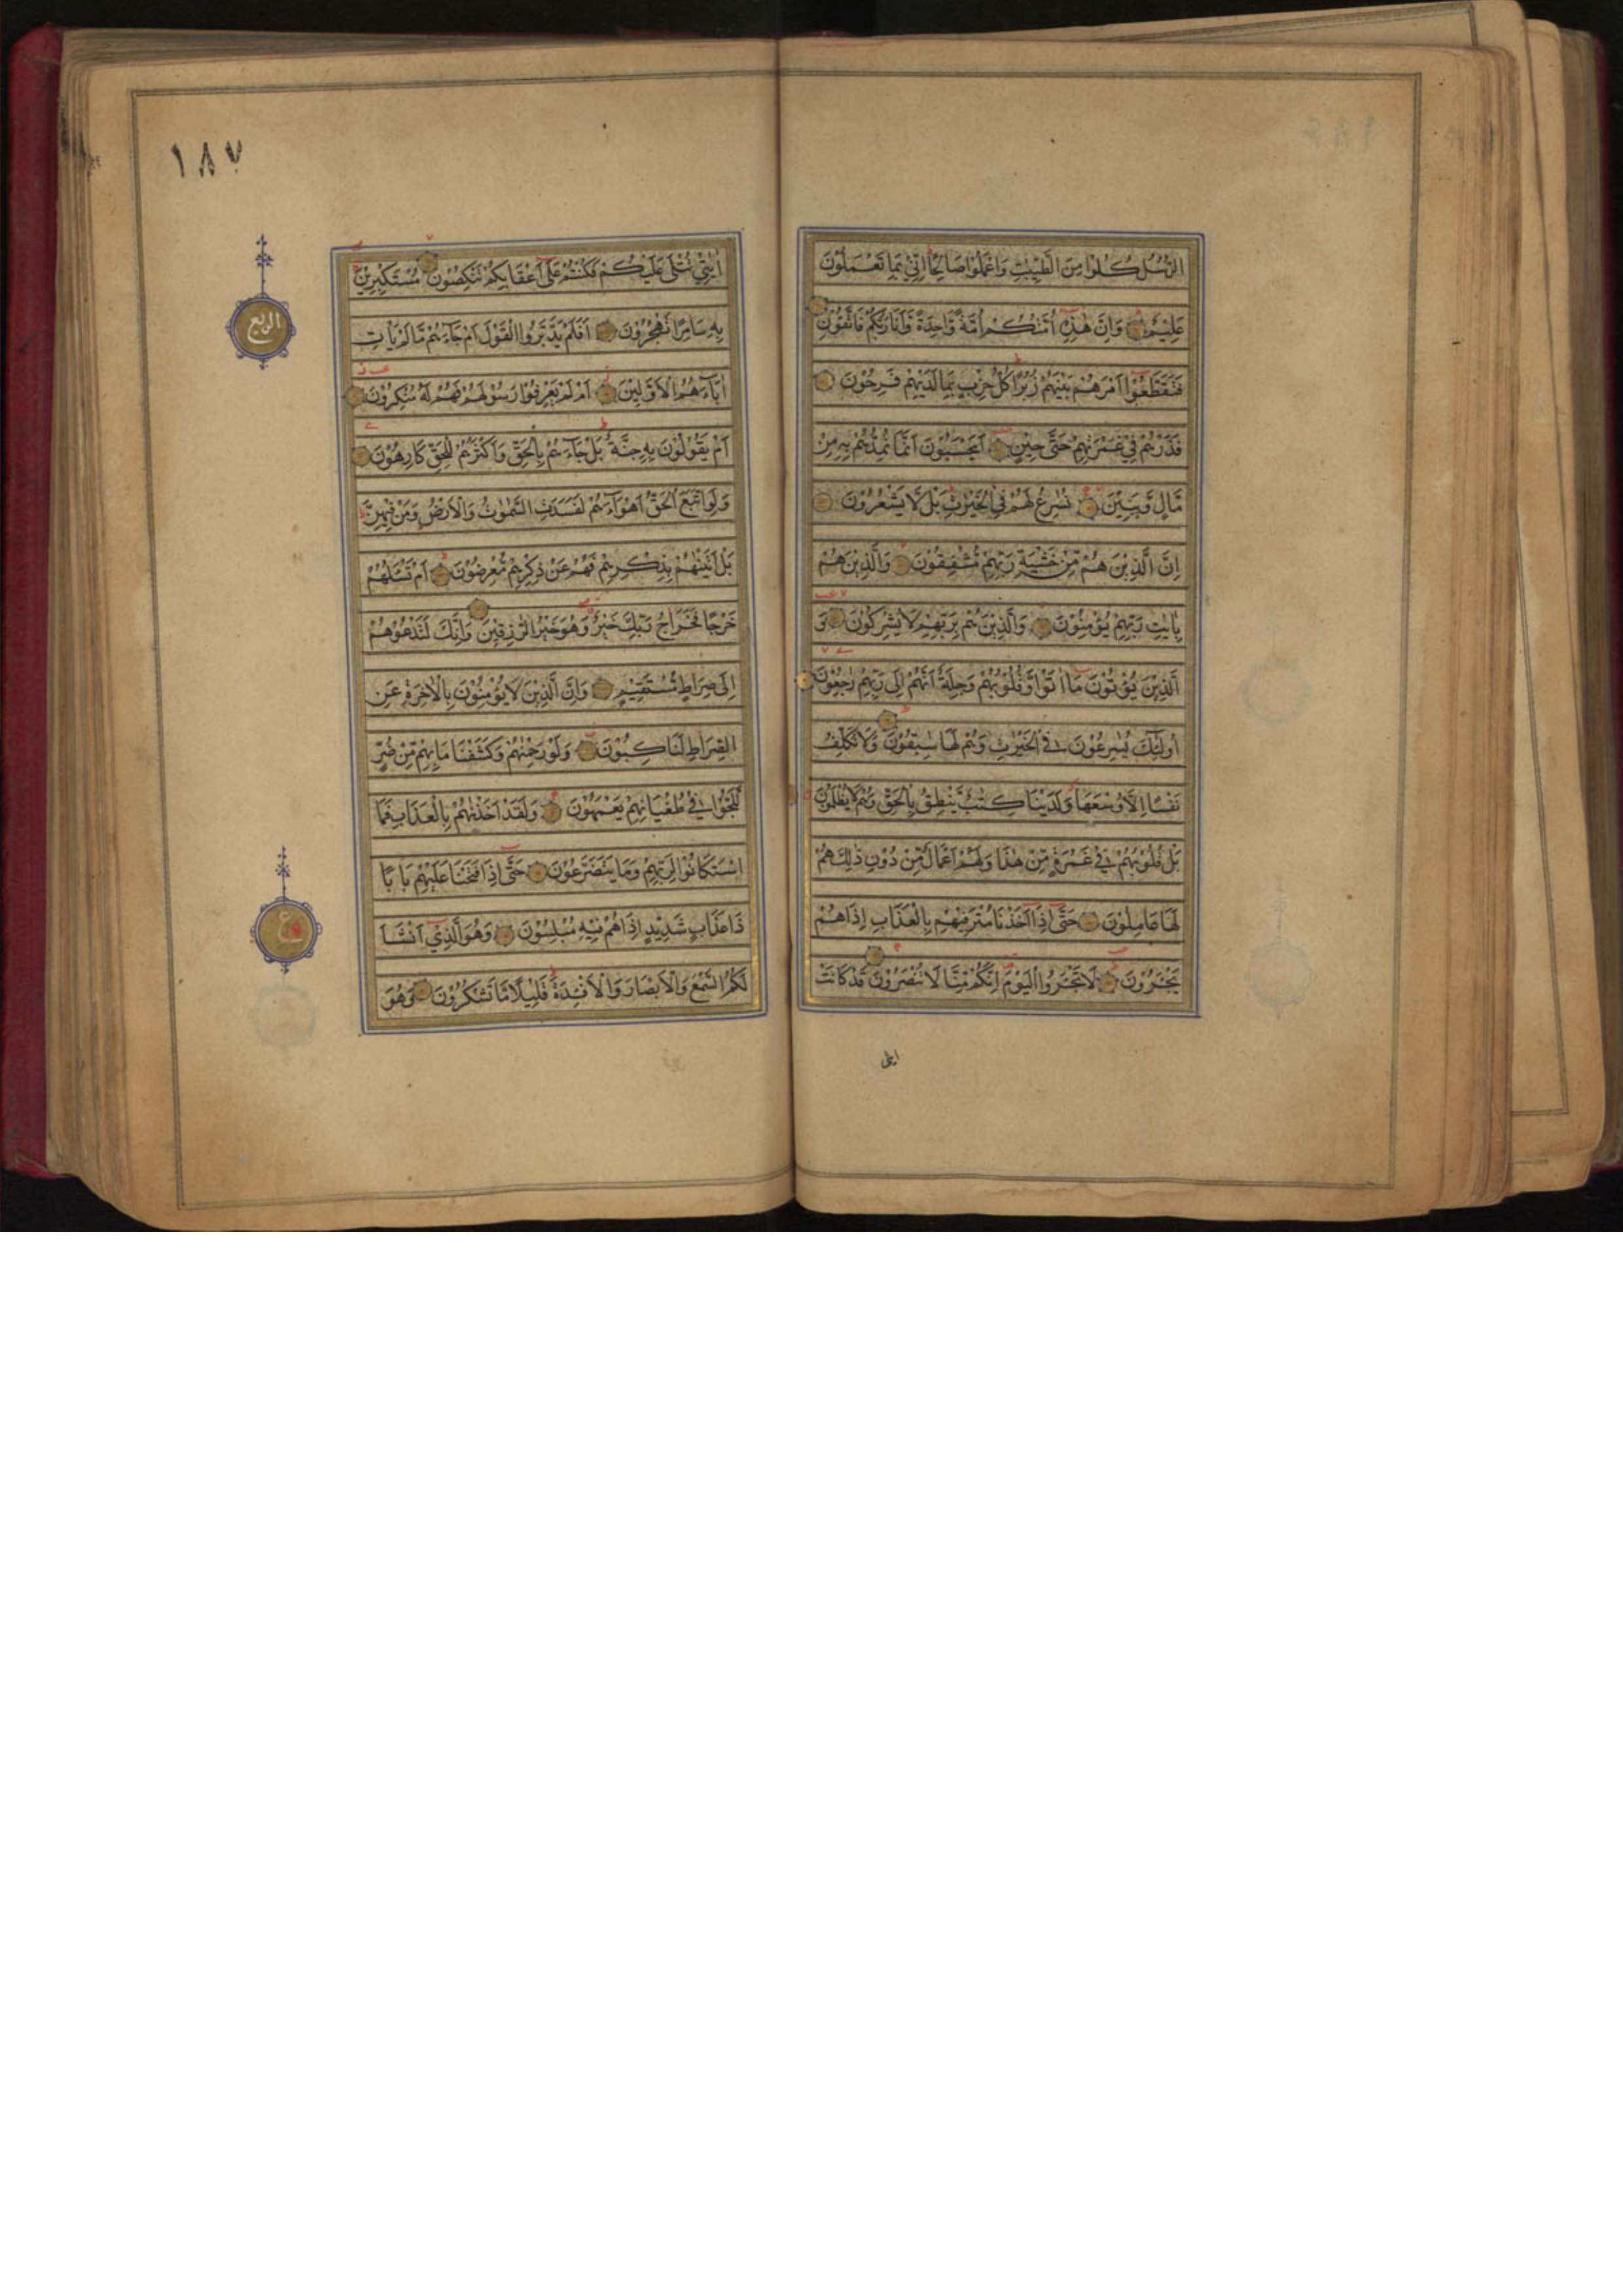 الرُّسُلُ كُلُوا مِنَ الطَّيِّبٰتِ وَاعْمَلُوا صَالِحًا اِنِّي بِمَا تَعْمَلُوْنَ
عَلِيْمٌ وَاِنَّ هٰذِهِ اُمَّتُكُمْ اُمَّةً وَّاحِدَةً وَّاَنَا رَبُّكُمْ فَاتَّقُوْنِ
فَتَقَطَّعُوْا اَمْرَهُمْ بَيْنَهُمْ زُبُرًا كُلُّ حِزْبٍ بِمَا لَدَيْهِمْ فَرِحُوْنَ
فَذَرْهُمْ فِيْ غَمْرَتِهِمْ حَتّٰى حِيْنٍ اَيَحْسَبُوْنَ اَنَّمَا نُمِدُّهُمْ بِهِ مِنْ
مَّالٍ وَّبَنِيْنَ نُسَارِعُ لَهُمْ فِي الْخَيْرٰتِ بَلْ لَا يَشْعُرُوْنَ
اِنَّ الَّذِيْنَ هُمْ مِّنْ خَشْيَةِ رَبِّهِمْ مُّشْفِقُوْنَ وَالَّذِيْنَ هُمْ
بِاٰيٰتِ رَبِّهِمْ يُؤْمِنُوْنَ وَالَّذِيْنَ هُمْ بِرَبِّهِمْ لَا يُشْرِكُوْنَ وَ
الَّذِيْنَ يُؤْتُوْنَ مَا اٰتَوْا وَّقُلُوْبُهُمْ وَجِلَةٌ اَنَّهُمْ اِلٰى رَبِّهِمْ رٰجِعُوْنَ
اُولٰئِكَ يُسٰرِعُوْنَ فِي الْخَيْرٰتِ وَهُمْ لَهَا سٰبِقُوْنَ وَلَا نُكَلِّفُ
نَفْسًا اِلَّا وُسْعَهَا وَلَدَيْنَا كِتٰبٌ يَّنْطِقُ بِالْحَقِّ وَهُمْ لَا يُظْلَمُوْنَ
بَلْ قُلُوْبُهُمْ فِي غَمْرَةٍ مِّنْ هٰذَا وَلَهُمْ اَعْمَالٌ مِّنْ دُوْنِ ذٰلِكَ هُمْ
لَهَا عَامِلُوْنَ حَتّٰى اِذَا اَخَذْنَا مُتْرَفِيْهِمْ بِالْعَذَابِ اِذَا هُمْ
يَجْـَٔرُوْنَ لَا تَجْـَٔرُوا الْيَوْمَ اِنَّكُمْ مِّنَّا لَا تُنْصَرُوْنَ قَدْ كَانَتْ
ايٰتى
١٨٧
اٰيٰتِيْ تُتْلٰى عَلَيْكُمْ فَكُنْتُمْ عَلٰى اَعْقَابِكُمْ تَنْكِصُوْنَ مُسْتَكْبِرِيْنَ
بِهِ سَامِرًا تَهْجُرُوْنَ اَفَلَمْ يَدَّبَّرُوا الْقَوْلَ اَمْ جَاءَهُمْ مَّا لَمْ يَاْتِ
اٰبَاءَهُمُ الْاَوَّلِيْنَ اَمْ لَمْ يَعْرِفُوْا رَسُوْلَهُمْ فَهُمْ لَهُ مُنْكِرُوْنَ
اَمْ يَقُوْلُوْنَ بِهِ جِنَّةٌ بَلْ جَاءَهُمْ بِالْحَقِّ وَاَكْثَرُهُمْ لِلْحَقِّ كَارِهُوْنَ
وَلَوِ اتَّبَعَ الْحَقُّ اَهْوَاءَهُمْ لَفَسَدَتِ السَّمٰوٰتُ وَالْاَرْضُ وَمَنْ فِيْهِنَّ
بَلْ اَتَيْنٰهُمْ بِذِكْرِهِمْ فَهُمْ عَنْ ذِكْرِهِمْ مُّعْرِضُوْنَ اَمْ تَسْـَٔلُهُمْ
خَرْجًا فَخَرَاجُ رَبِّكَ خَيْرٌ وَّهُوَ خَيْرُ الرّٰزِقِيْنَ وَاِنَّكَ لَتَدْعُوْهُمْ
اِلٰى صِرَاطٍ مُّسْتَقِيْمٍ وَاِنَّ الَّذِيْنَ لَا يُؤْمِنُوْنَ بِالْاٰخِرَةِ عَنِ
الصِّرَاطِ لَنَاكِبُوْنَ وَلَوْ رَحِمْنٰهُمْ وَكَشَفْنَا مَا بِهِمْ مِّنْ ضُرٍّ
لَّلَجُّوْا فِي طُغْيَانِهِمْ يَعْمَهُوْنَ وَلَقَدْ اَخَذْنٰهُمْ بِالْعَذَابِ فَمَا
اسْتَكَانُوْا لِرَبِّهِمْ وَمَا يَتَضَرَّعُوْنَ حَتّٰى اِذَا فَتَحْنَا عَلَيْهِمْ بَابًا
ذَا عَذَابٍ شَدِيْدٍ اِذَا هُمْ فِيْهِ مُبْلِسُوْنَ وَهُوَ الَّذِيْ اَنْشَاَ
لَكُمُ السَّمْعَ وَالْاَبْصَارَ وَالْاَفْئِدَةَ قَلِيْلًا مَّا تَشْكُرُوْنَ وَهُوَ
الربع
ع